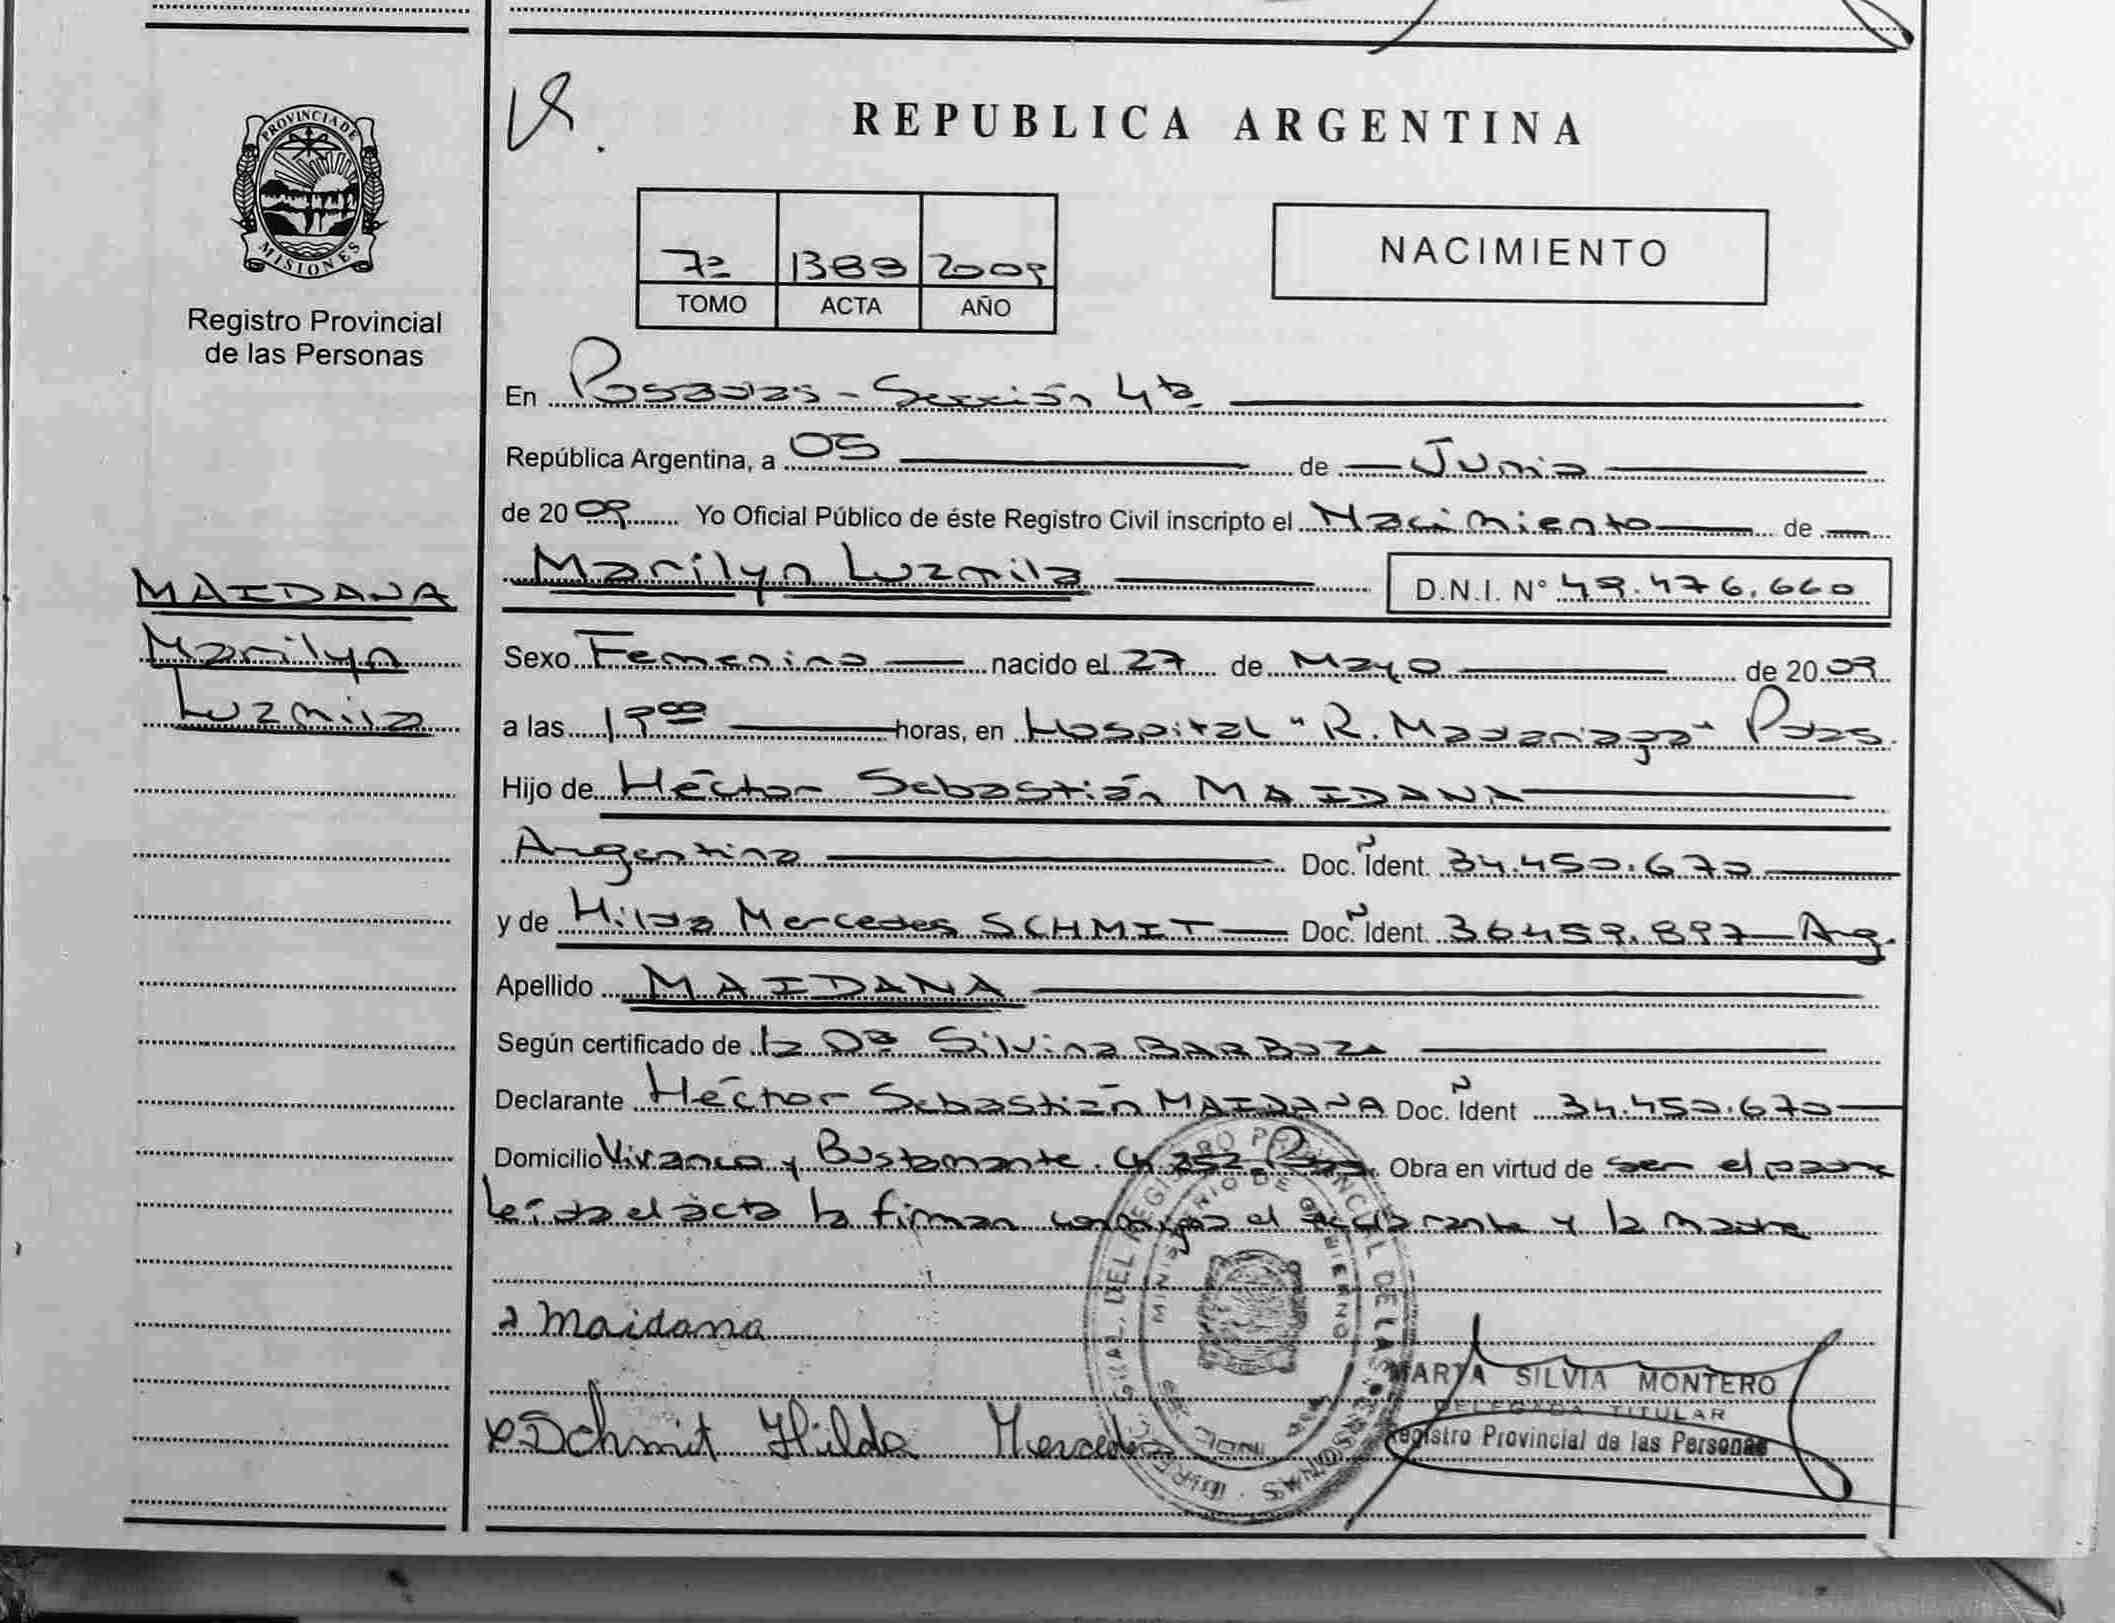 PROVINCIA DE
MISIONES
Registro Provincial
de las Personas
MAIDANA
Marilyn
Luzmila
REPUBLICA ARGENTINA
7º 1389 2009
TOMO ACTA AÑO
NACIMIENTO
En Posadas - Sección 4ta
República Argentina, a 05 de Junio
de 2009 Yo Oficial Público de éste Registro Civil inscripto el Nacimiento de
Marilyn Luzmila D.N.I. N° 49.476.660
Sexo Femenino nacido el 27 de Mayo de 2009
a las 19 00 horas, en Hospital "R. Madariaga" Pdas.
Hijo de Héctor Sebastián MAIDANA
Argentino Doc. Ident. 34.450.670
y de Hilda Mercedes SCHMIT Doc. Ident. 36459.897 Arg.
Apellido MAIDANA
Según certificado de la Dra Silvina BARBOZA
Declarante Héctor Sebastián MAIDANA Doc. Ident 34.450.670
Domicilio Vivanco y Bustamante. Ch 252 Pdas. Obra en virtud de ser el padre
Leída el acta la firman conmigo el declarante y la madre
Maidana
Schmit Hilda Mercedes
GRAL. DEL REGISTRO PROVINCIAL DE LAS PERSONAS
MINISTERIO DE GOBIERNO
MARTA SILVIA MONTERO
DELEGADA TITULAR
Registro Provincial de las Personas